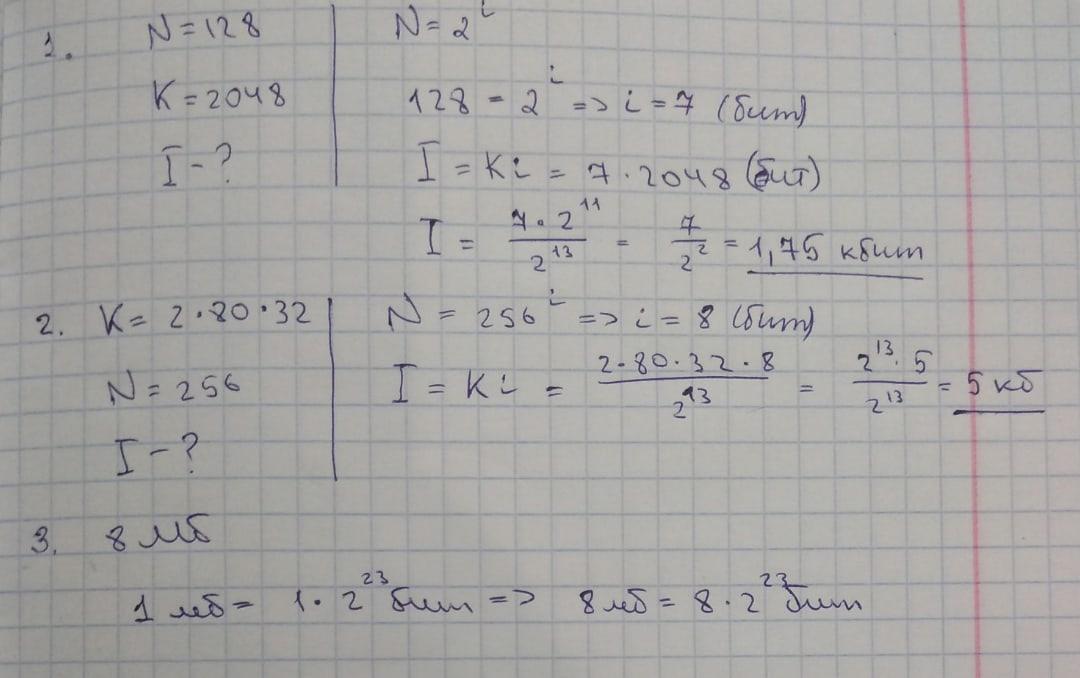 1. N=128
K=2048
I-?
N=2^i
128=2^i => i=7 (бит)
I=Ki=7·2048 (бит)
I=7·2^11/2^13=7/2^2=1,75 кбит
2. K=2·80·32
N=256
I-?
N=256^i => i=8 (бит)
I=Ki=2·80·32·8/2^13=2^13·5/2^13=5 кб
3. 8 Мб
1 мб=1·2^23 бит => 8 мб=8·2^23 бит